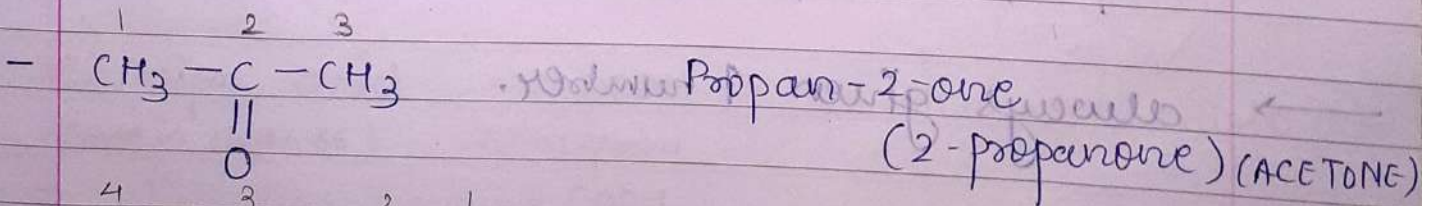 1 2 3
- CH3 - C - CH3 Propan-2-one
||
O (2-propanone) (ACETONE)
4 3 2 1